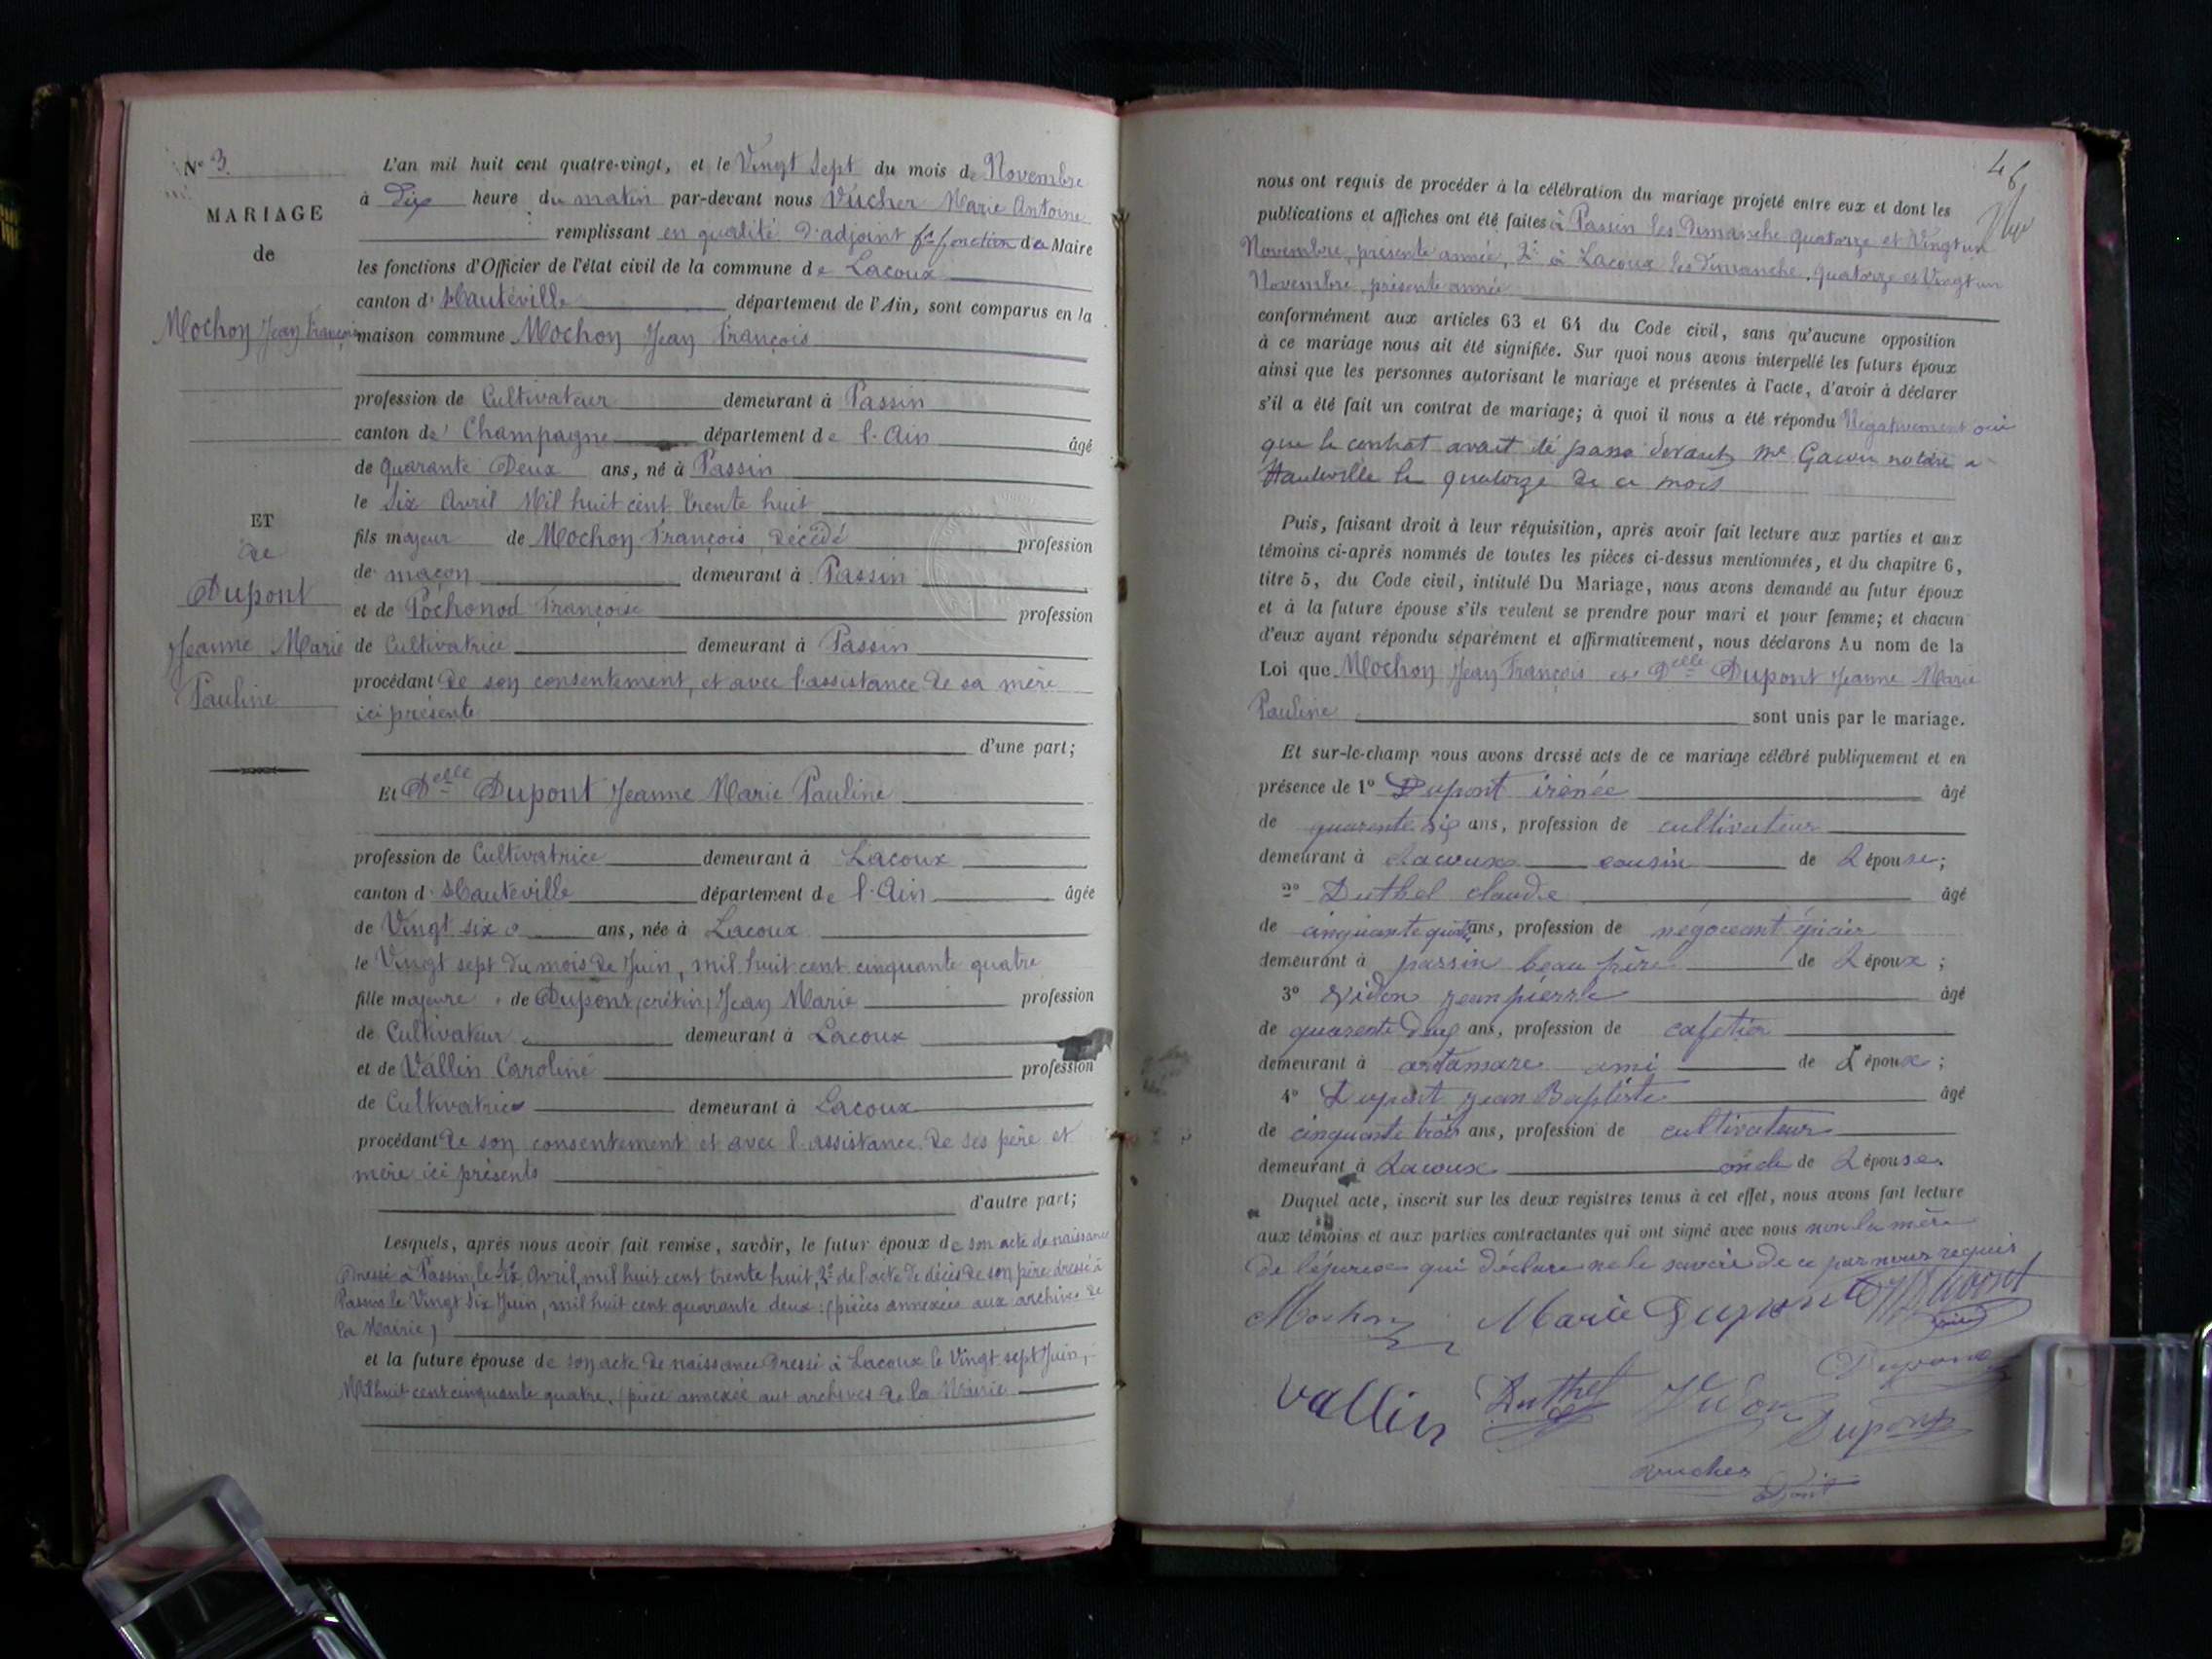 N° 3.
MARIAGE
de
Mochon Jean François
ET
de
Dupont
Jeanne Marie
Pauline
L'an mil huit cent quatre-vingt, et le Vingt Sept du mois de Novembre
à Dix heure du matin par-devant nous Vucher Marie Antoine
remplissant en qualité d'adjoint fonction de Maire
les fonctions d'Officier de l'état civil de la commune de Lacoux
canton d' Hauteville département de l'Ain, sont comparus en la
maison commune Mochon Jean François
profession de Cultivateur demeurant à Passin
canton de Champagne département de l'Ain âgé
de quarante Deux ans, né à Passin
le Six Avril Mil huit cent trente huit
fils majeur de Mochon François, décédé profession
de maçon demeurant à Passin
et de Pochonod Françoise profession
de Cultivatrice demeurant à Passin
procédant de son consentement, et avec l'assistance de sa mère
ici présente
d'une part;
Et Delle Dupont Jeanne Marie Pauline
profession de Cultivatrice demeurant à Lacoux
canton d' Hauteville département de l'Ain âgée
de Vingt six ans, née à Lacoux
le Vingt sept du mois de Juin, mil huit cent cinquante quatre
fille majeure de Dupont, crétin, Jean Marie profession
de Cultivateur demeurant à Lacoux
et de Vallin Caroline profession
de Cultivatrice demeurant à Lacoux
procédant de son consentement et avec l'assistance de ses père et
mère ici présents
d'autre part;
Lesquels, après nous avoir fait remise, savoir, le futur époux de son acte de naissance
Dressé à Passin, le Six Avril, mil huit cent trente huit, 2° de l'acte de décès de son père dressé à
Passin le Vingt Six Juin, mil huit cent quarante deux (pièces annexées aux archives de
la Mairie)
et la future épouse de son acte de naissance Dressé à Lacoux le Vingt sept Juin,
Mil huit cent cinquante quatre, (pièce annexée aux archives de la Mairie
nous ont requis de procéder à la célébration du mariage projeté entre eux et dont les
publications et affiches ont été faites à Passin les Dimanche quatorze et Vingt un
Novembre, présente année, 2° à Lacoux les dimanche, quatorze et Vingt un
Novembre, présente année
conformément aux articles 63 et 64 du Code civil, sans qu'aucune opposition
à ce mariage nous ait été signifiée. Sur quoi nous avons interpellé les futurs époux
ainsi que les personnes autorisant le mariage et présentes à l'acte, d'avoir à déclarer
s'il a été fait un contrat de mariage; à quoi il nous a été répondu Négativement oui
que le contrat avait été passé devant Me Gacon notaire a
Hauteville le quatorze de ce mois
Puis, faisant droit à leur réquisition, après avoir fait lecture aux parties et aux
témoins ci-après nommés de toutes les pièces ci-dessus mentionnées, et du chapitre 6,
titre 5, du Code civil, intitulé Du Mariage, nous avons demandé au futur époux
et à la future épouse s'ils veulent se prendre pour mari et pour femme; et chacun
d'eux ayant répondu séparément et affirmativement, nous déclarons Au nom de la
Loi que Mochon Jean François et Delle Dupont Jeanne Marie
Pauline sont unis par le mariage.
Et sur-le-champ nous avons dressé acte de ce mariage célébré publiquement et en
présence de 1° Dupont irénée âgé
de quarente six ans, profession de cultivateur
demeurant à Lacoux cousin de L épouse;
2° Duthel claude âgé
de cinquante quatre ans, profession de négociant épicier
demeurant à passin beau père de L époux;
3° Vidon jean pierre âgé
de quarente deux ans, profession de cafetier
demeurant à artamare ami de L époux;
4° Dupont jean Baptiste âgé
de cinquante trois ans, profession de cultivateur
demeurant à Lacoux oncle de L épouse.
Duquel acte, inscrit sur les deux registres tenus à cet effet, nous avons fait lecture
aux témoins et aux parties contractantes qui ont signé avec nous non la mère
de l'époux qui déclare ne le savoir de ce par nous requis
Mochon Marie Dupont
Dupont
Vallin Duthel Vidon Dupont
Vucher